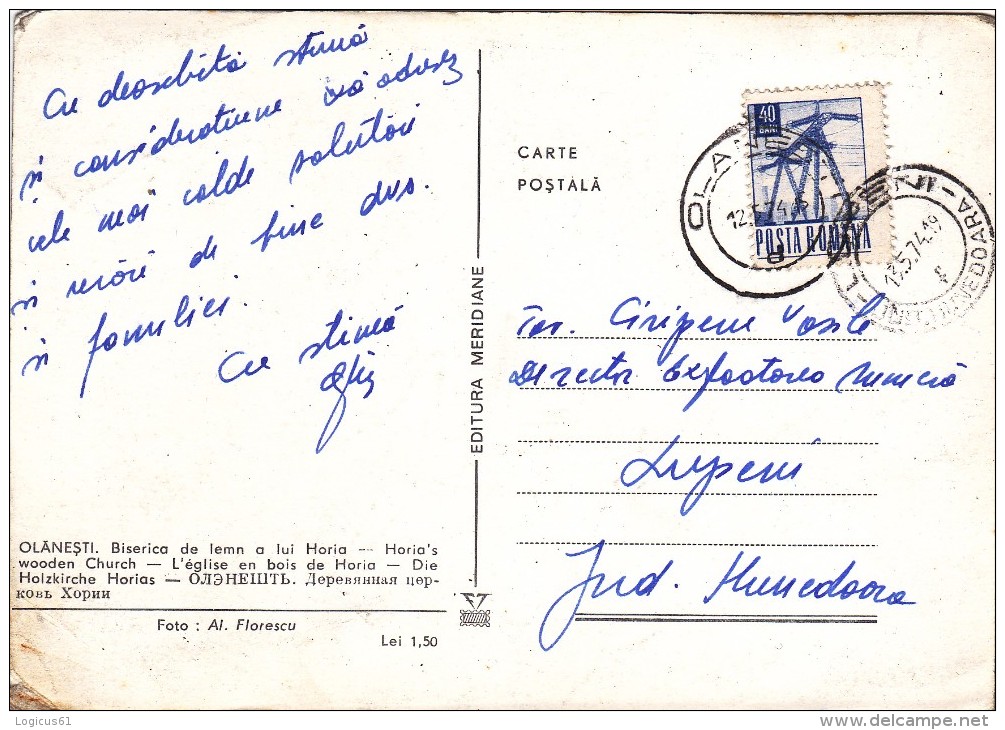 Cu deosebită stimă
și considerațiune vă aduc
cele mai calde salutări
și urări de bine dvs.
și familiei.
Cu stimă
OLĂNEȘTI. Biserica de lemn a lui Horia — Horia's
wooden Church — L'église en bois de Horia — Die
Holzkirche Horias — ОЛЭНЕШТЬ. Деревянная цер-
ковь Хории
Foto : Al. Florescu
Lei 1,50
EDITURA MERIDIANE
CARTE
POȘTALĂ
40
BANI
POSTA ROMÎNA
12.5.74
13.5.74.19
HUNEDOARA
Tov. Ciripene Vasile
Director Exploatarea Minieră
Lupeni
Jud. Hunedoara
Logicus61
delcampe.net